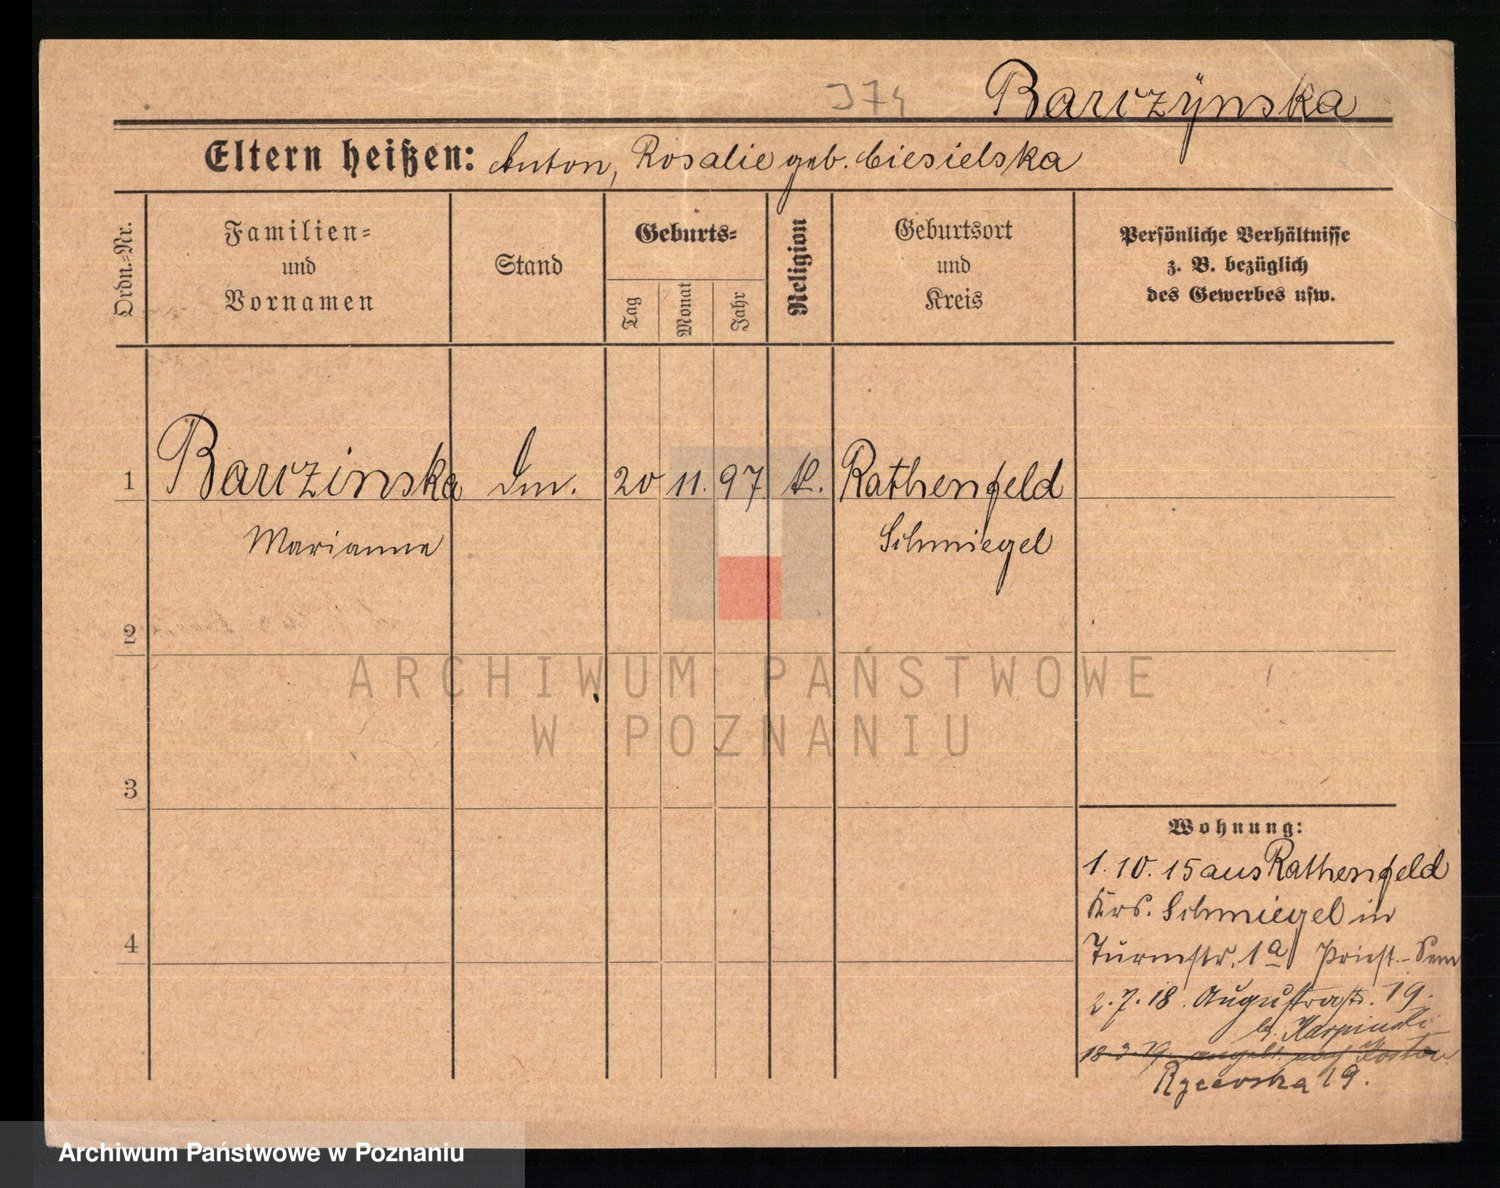 374
Barczÿnska
Eltern heißen: Anton, Rosalie geb. Ciesielska
Ordn.-Nr.
Familien-
und
Vornamen
Stand
Geburts-
Tag
Monat
Jahr
Religion
Geburtsort
und
Kreis
Persönliche Verhältnisse
z. B. bezüglich
des Gewerbes usw.
1 Barczinska Dm. 20 11. 97 k. Rathenfeld
Marianne Schmiegel
2
3
4
ARCHIWUM PAŃSTWOWE
W POZNANIU
Wohnung:
1. 10. 15 aus Rathenfeld
Krs. Schmiegel in
Turmstr. 1a Priest.-Sem
2. 7. 18. Augustastr. 19.
b. Karpinski
18. 3. 19. nach Kosten
Rycerska 19.
Archiwum Państwowe w Poznaniu